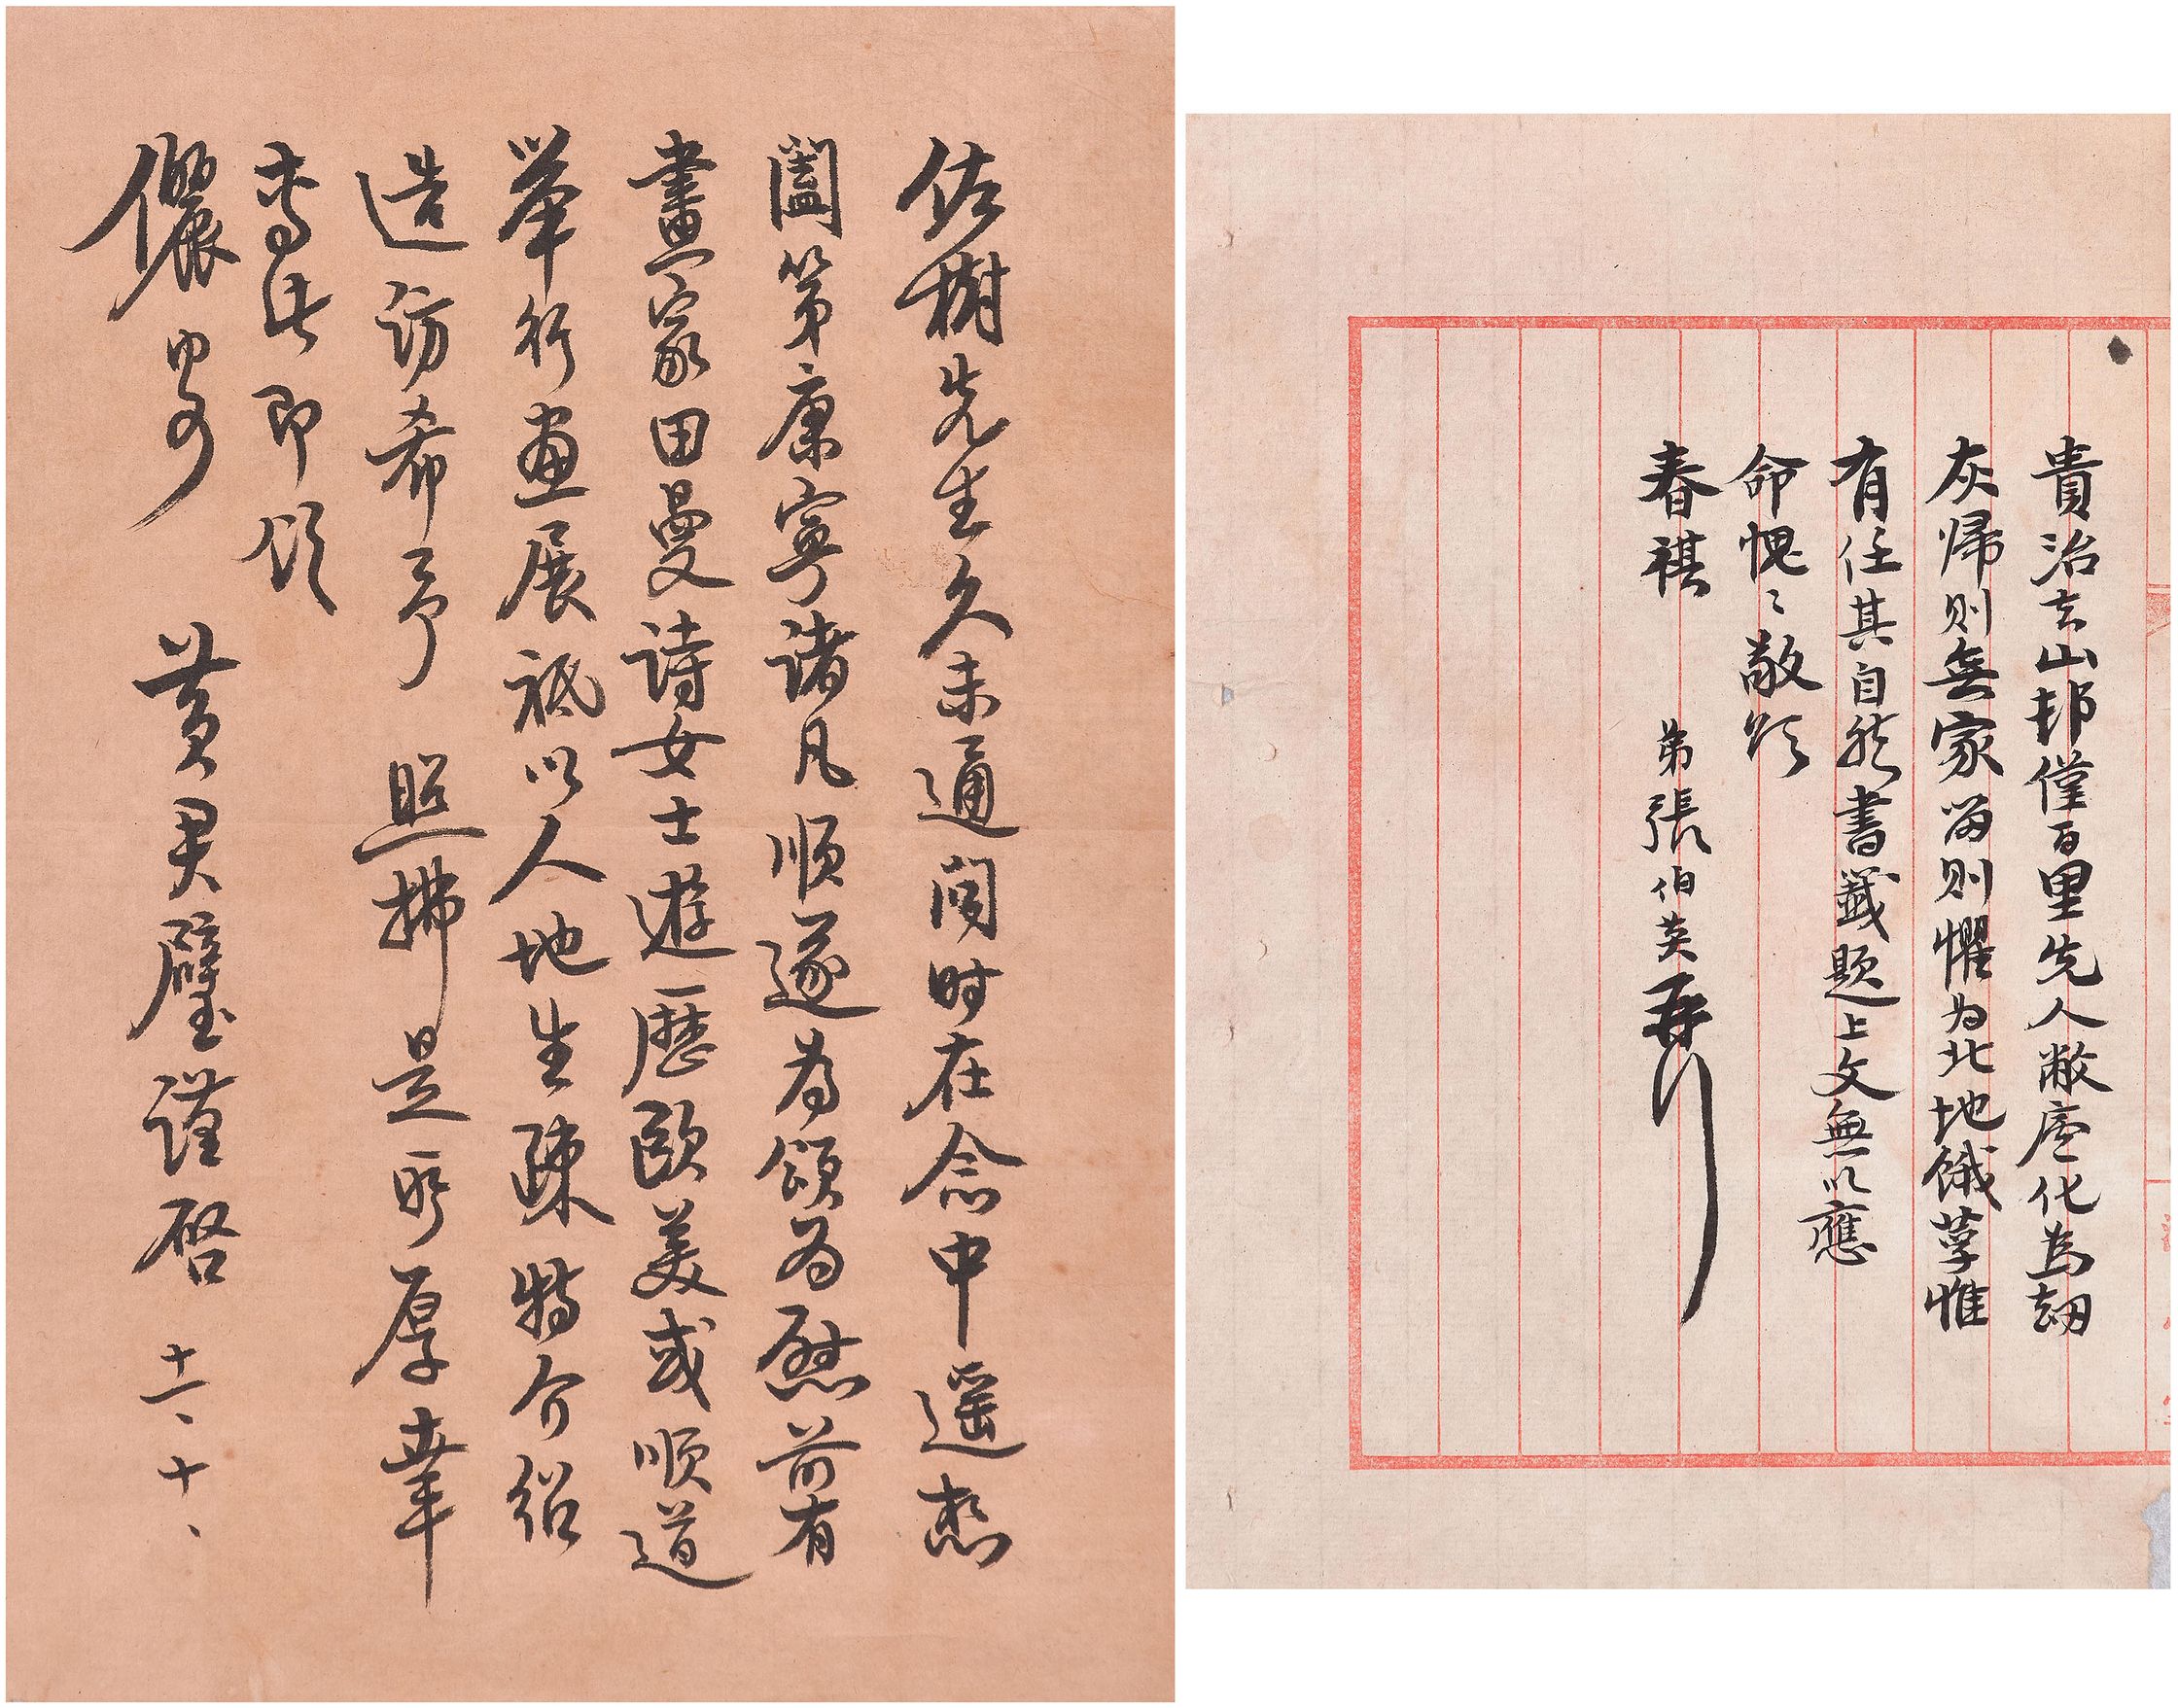 貴治去山邨僅百里先人敝廬化為劫
灰歸則無家留則懼為北地餓莩惟
有任其自然書籤題上文無以應
命愧々敬頌
春祺
弟張伯英再行
佐樹先生久未通聞時在念中遥想
闔第康寧諸凡順遂為頌為慰前有
畫家田曼詩女士遊歷歐美或順道
举行画展祗以人地生疎特介紹
造訪希予 照拂是所厚幸
專此即頌
儷安 黄君璧謹啓 十一、十、